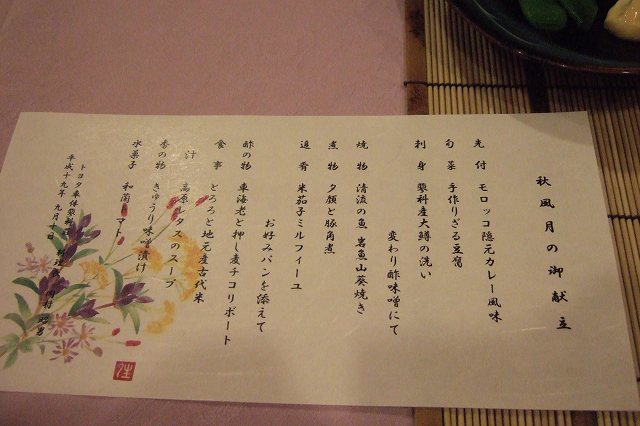 秋風月の御献立
先付 モロッコ隠元カレー風味
旬菜 手作りざる豆腐
刺身 蓼科産大鱒の洗い
変わり酢味噌にて
焼物 清流の魚 岩魚山葵焼き
煮物 夕顔と豚角煮
進肴 米茄子ミルフィーユ
お好みパンを添えて
酢の物 車海老と押し麦チコリボート
食事 とろろと地元産古代米
汁 高原レタスのスープ
香の物 きゅうり味噌漬け
水菓子 和蘭トマト
平成十九年 九月十日
トヨタ車体蓼科